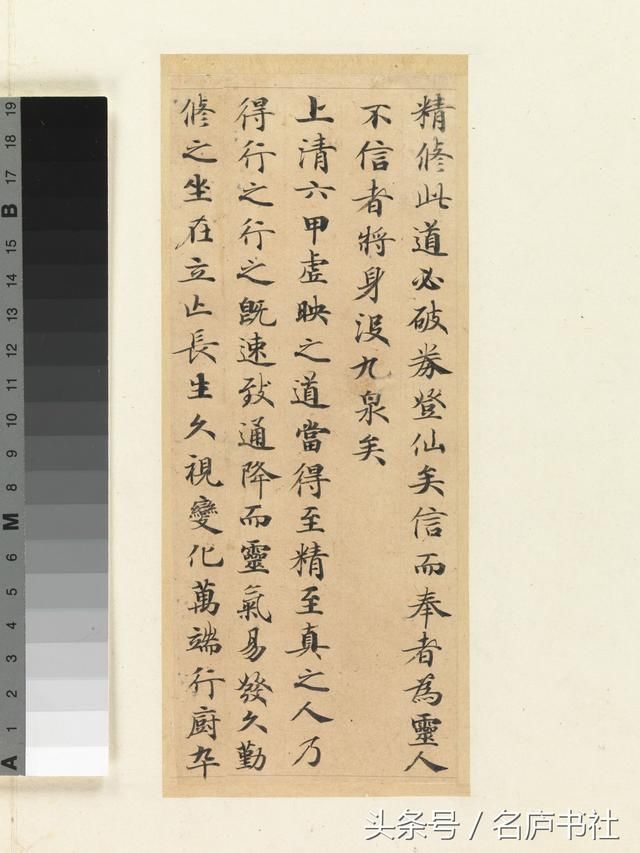 精脩此道必破券登仙矣信而奉者為靈人
不信者將身没九泉矣
上清六甲虛映之道當得至精至真之人乃
得行之行之既速致通降而靈氣易發久勤
脩之坐在立亡長生久視變化萬端行廚卒
19
18
17
B
15
14
13
12
11
10
9
8
M
6
5
4
3
2
1
A
头条号 / 名庐书社